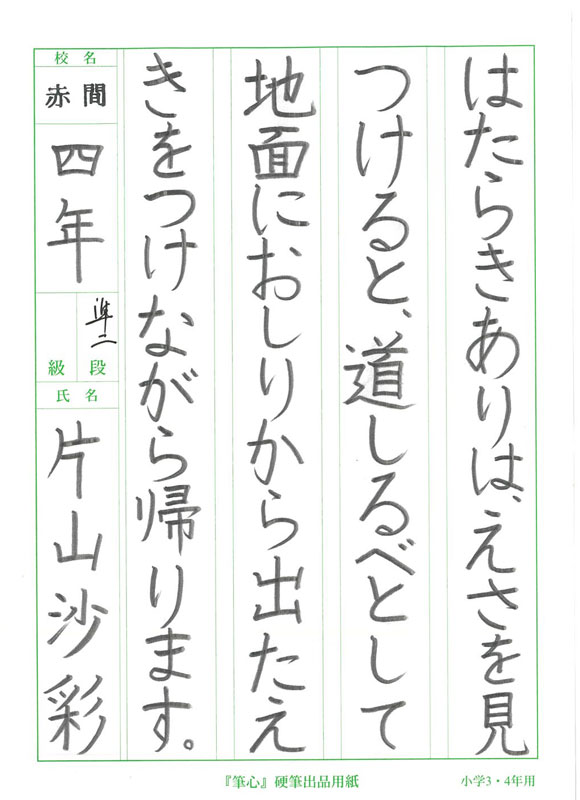 はたらきありは、えさを見
つけると、道しるべとして
地面におしりから出たえ
きをつけながら帰ります。
校名
赤間
四年
準二
段
級
氏名
片山沙彩
『筆心』硬筆出品用紙
小学3・4年用